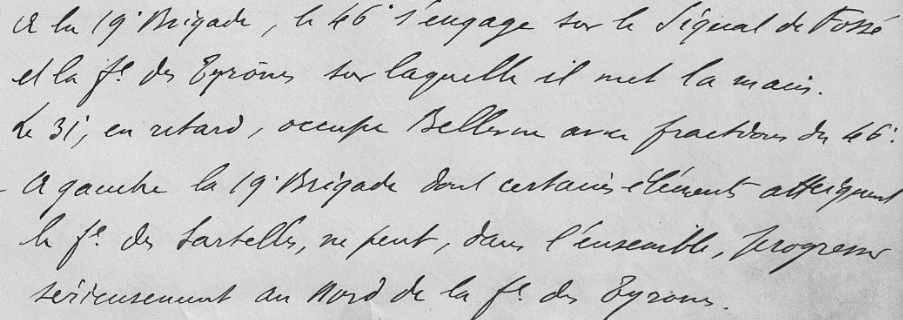 A la 19e Brigade, le 46e s'engage sur le Signal de Fossé
et la fe des Eyrônes sur laquelle il met la main.
Le 31e, en retard, occupe Belleem avec fractions du 46e.
- A gauche la 19e Brigade dont certains éléments atteignent
la fe des Sartelles, ne peut, dans l'ensemble, progresser
sérieusement au Nord de la fe des Eyrones.